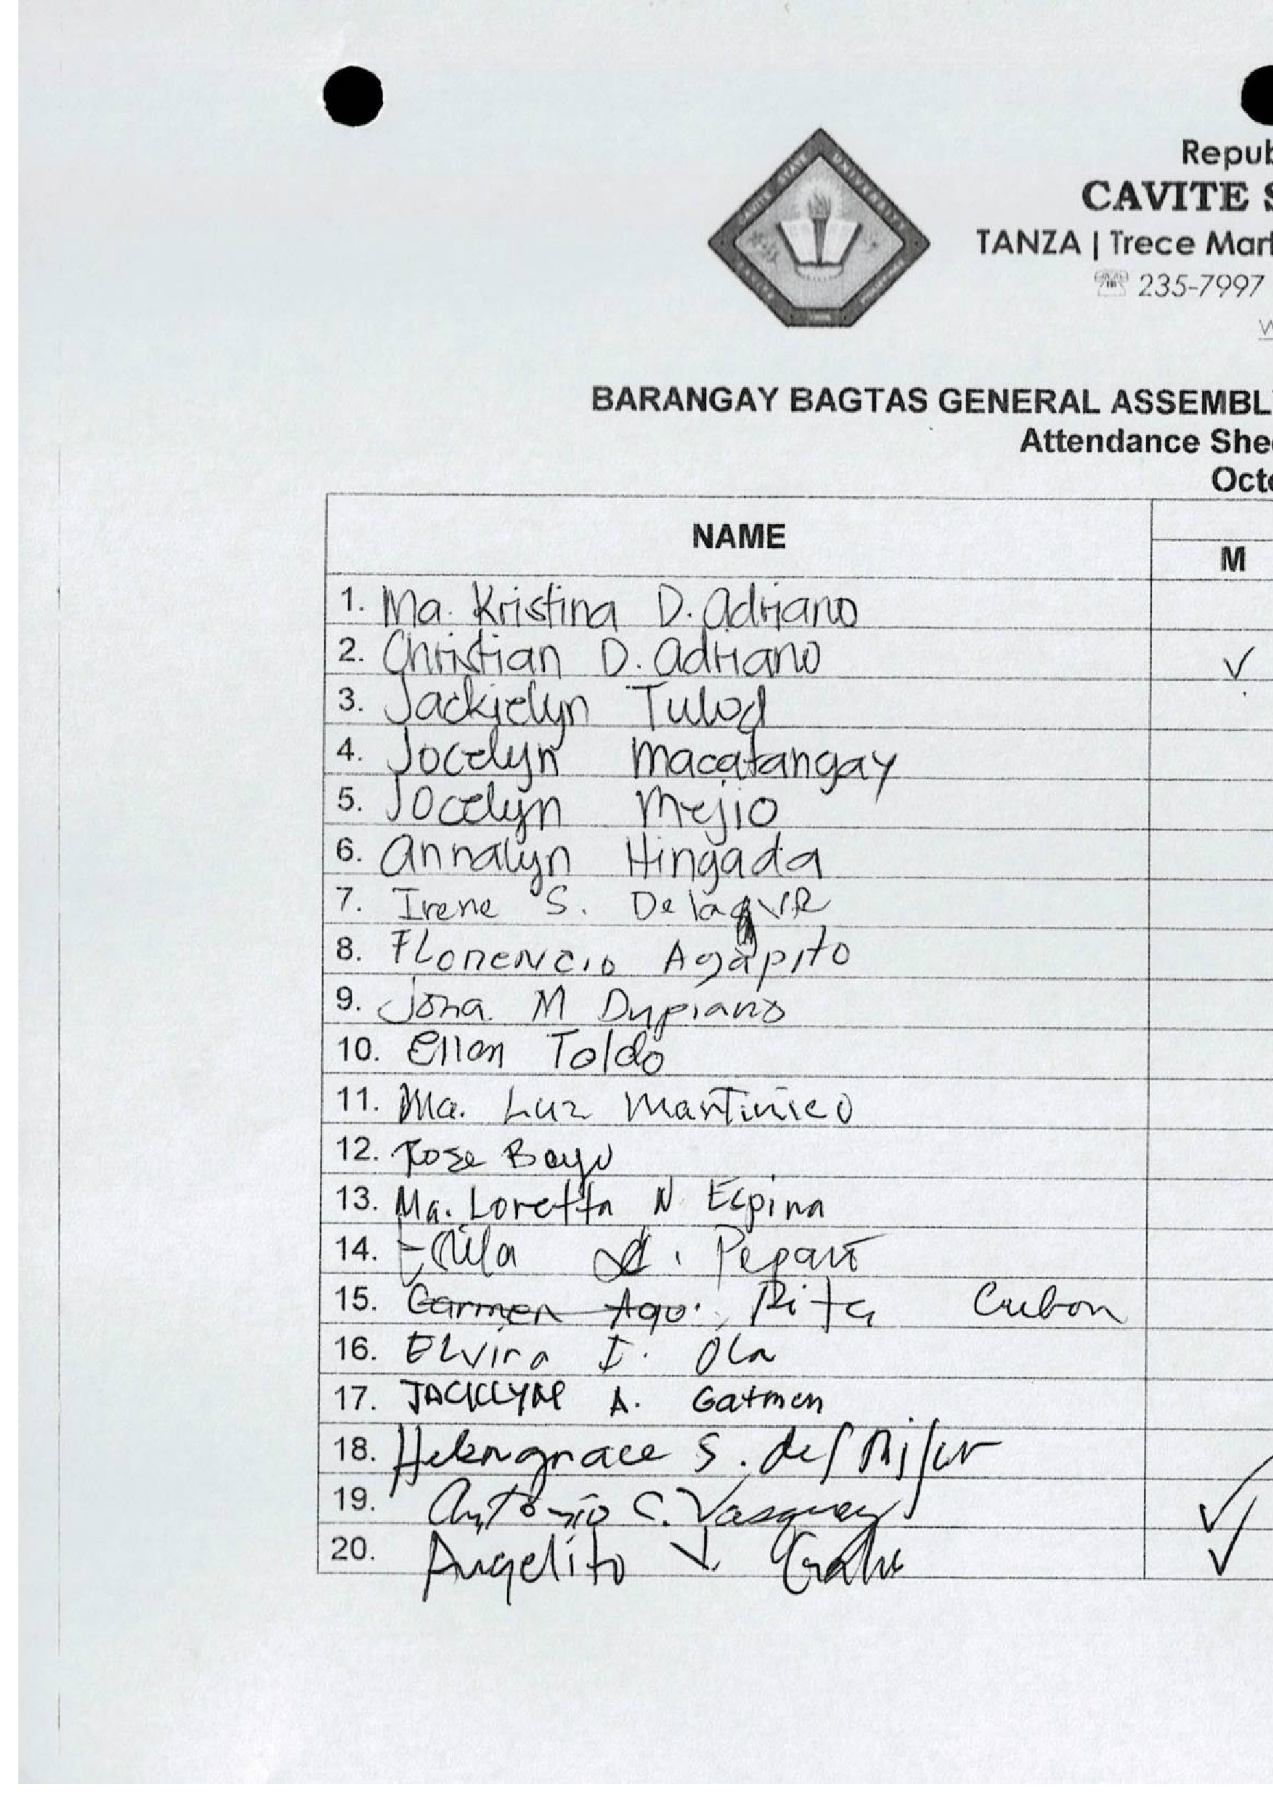 CAVITE STATE UNIVERSITY
CAVITE
Repub
CAVITE S
TANZA | Trece Mart
235-7997
W
BARANGAY BAGTAS GENERAL ASSEMBL
Attendance Shee
Octo
NAME
M
1. Ma. Kristina D. Adriano
2. Christian D. Adriano ✓
3. Jackielyn Tulod
4. Jocelyn Macatangay
5. Jocelyn Mejio
6. Annalyn Hingada
7. Irene S.
8. Florencio Agapito
9. Jona M Dypiano
10. Ellen Toldo
11. Ma. Luz Martinico
12. Rose Bayu
13. Ma. Loretta N. Espina
14.
15. Carmen Ago. Rita Cubon
16. Elvira I. Ola
17. JACKLYN A. Gatmen
18. Helengrace S. del
19. Antonio C. Vasquez ✓
20. Angelito V. ✓